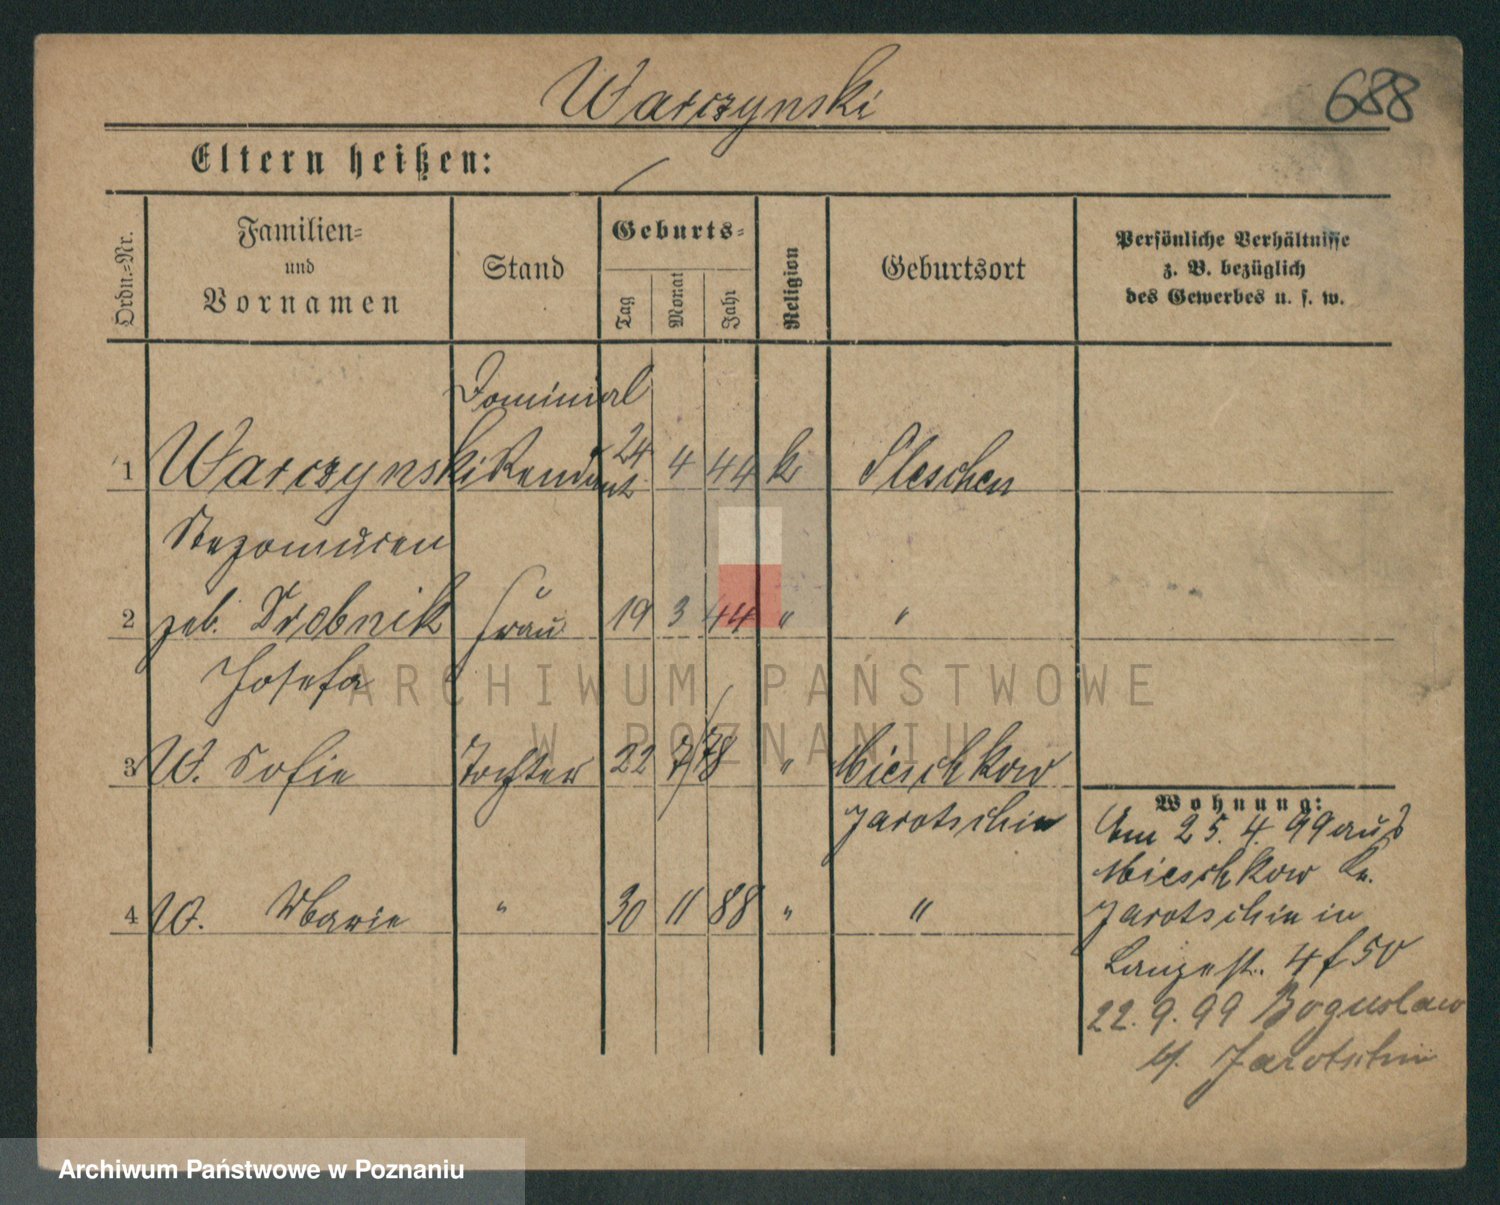 Warczynski
688
Eltern heißen:
Ordn.=Nr.
Familien=
und
Vornamen
Stand
Geburts=
Tag
Monat
Jahr
Religion
Geburtsort
Persönliche Verhältnisse
z. B. bezüglich
des Gewerbes u. s. w.
Dominial
1 Warczynski Rendant 24 4 44 k Pleschen
2 geb. Drobnik Frau 19 3 44 " "
Josefa
3 W. Sofie Tochter 22 7 78 " Mieschkow
Jarotschin
4 W. Marie " 30 11 88 " "
Wohnung:
Am 25. 4. 99 aus
Mieschkow Kr.
Jarotschin in
Langestr. 4 f 50
22. 9. 99 Boguslaw
b/. Jarotschin
ARCHIWUM PAŃSTWOWE
W POZNANIU
Archiwum Państwowe w Poznaniu